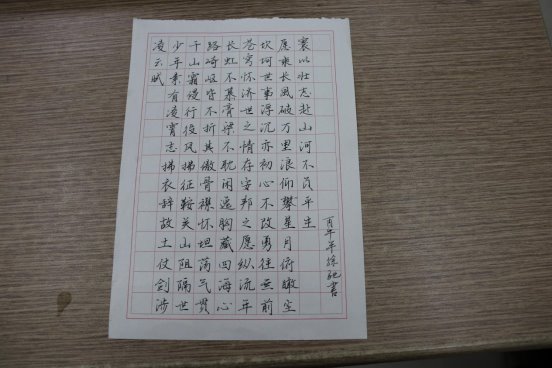 凌云賦
少年素有凌霄志拂衣辞故土仗剑涉
千山霜侵行役风拂征鞍关山阻隔世
路崎岖皆不折其傲骨襟怀坦荡气贯
长虹不慕膏粱不耽闲逸胸藏四海心
苍穹怀济世之情存安邦之愿纵流年
坎坷世事浮沉亦初心不改勇往無前
愿乘长風破万里浪仰攀星月俯瞰尘
寰以壮志赴山河不负平生
丙午年徐驰書